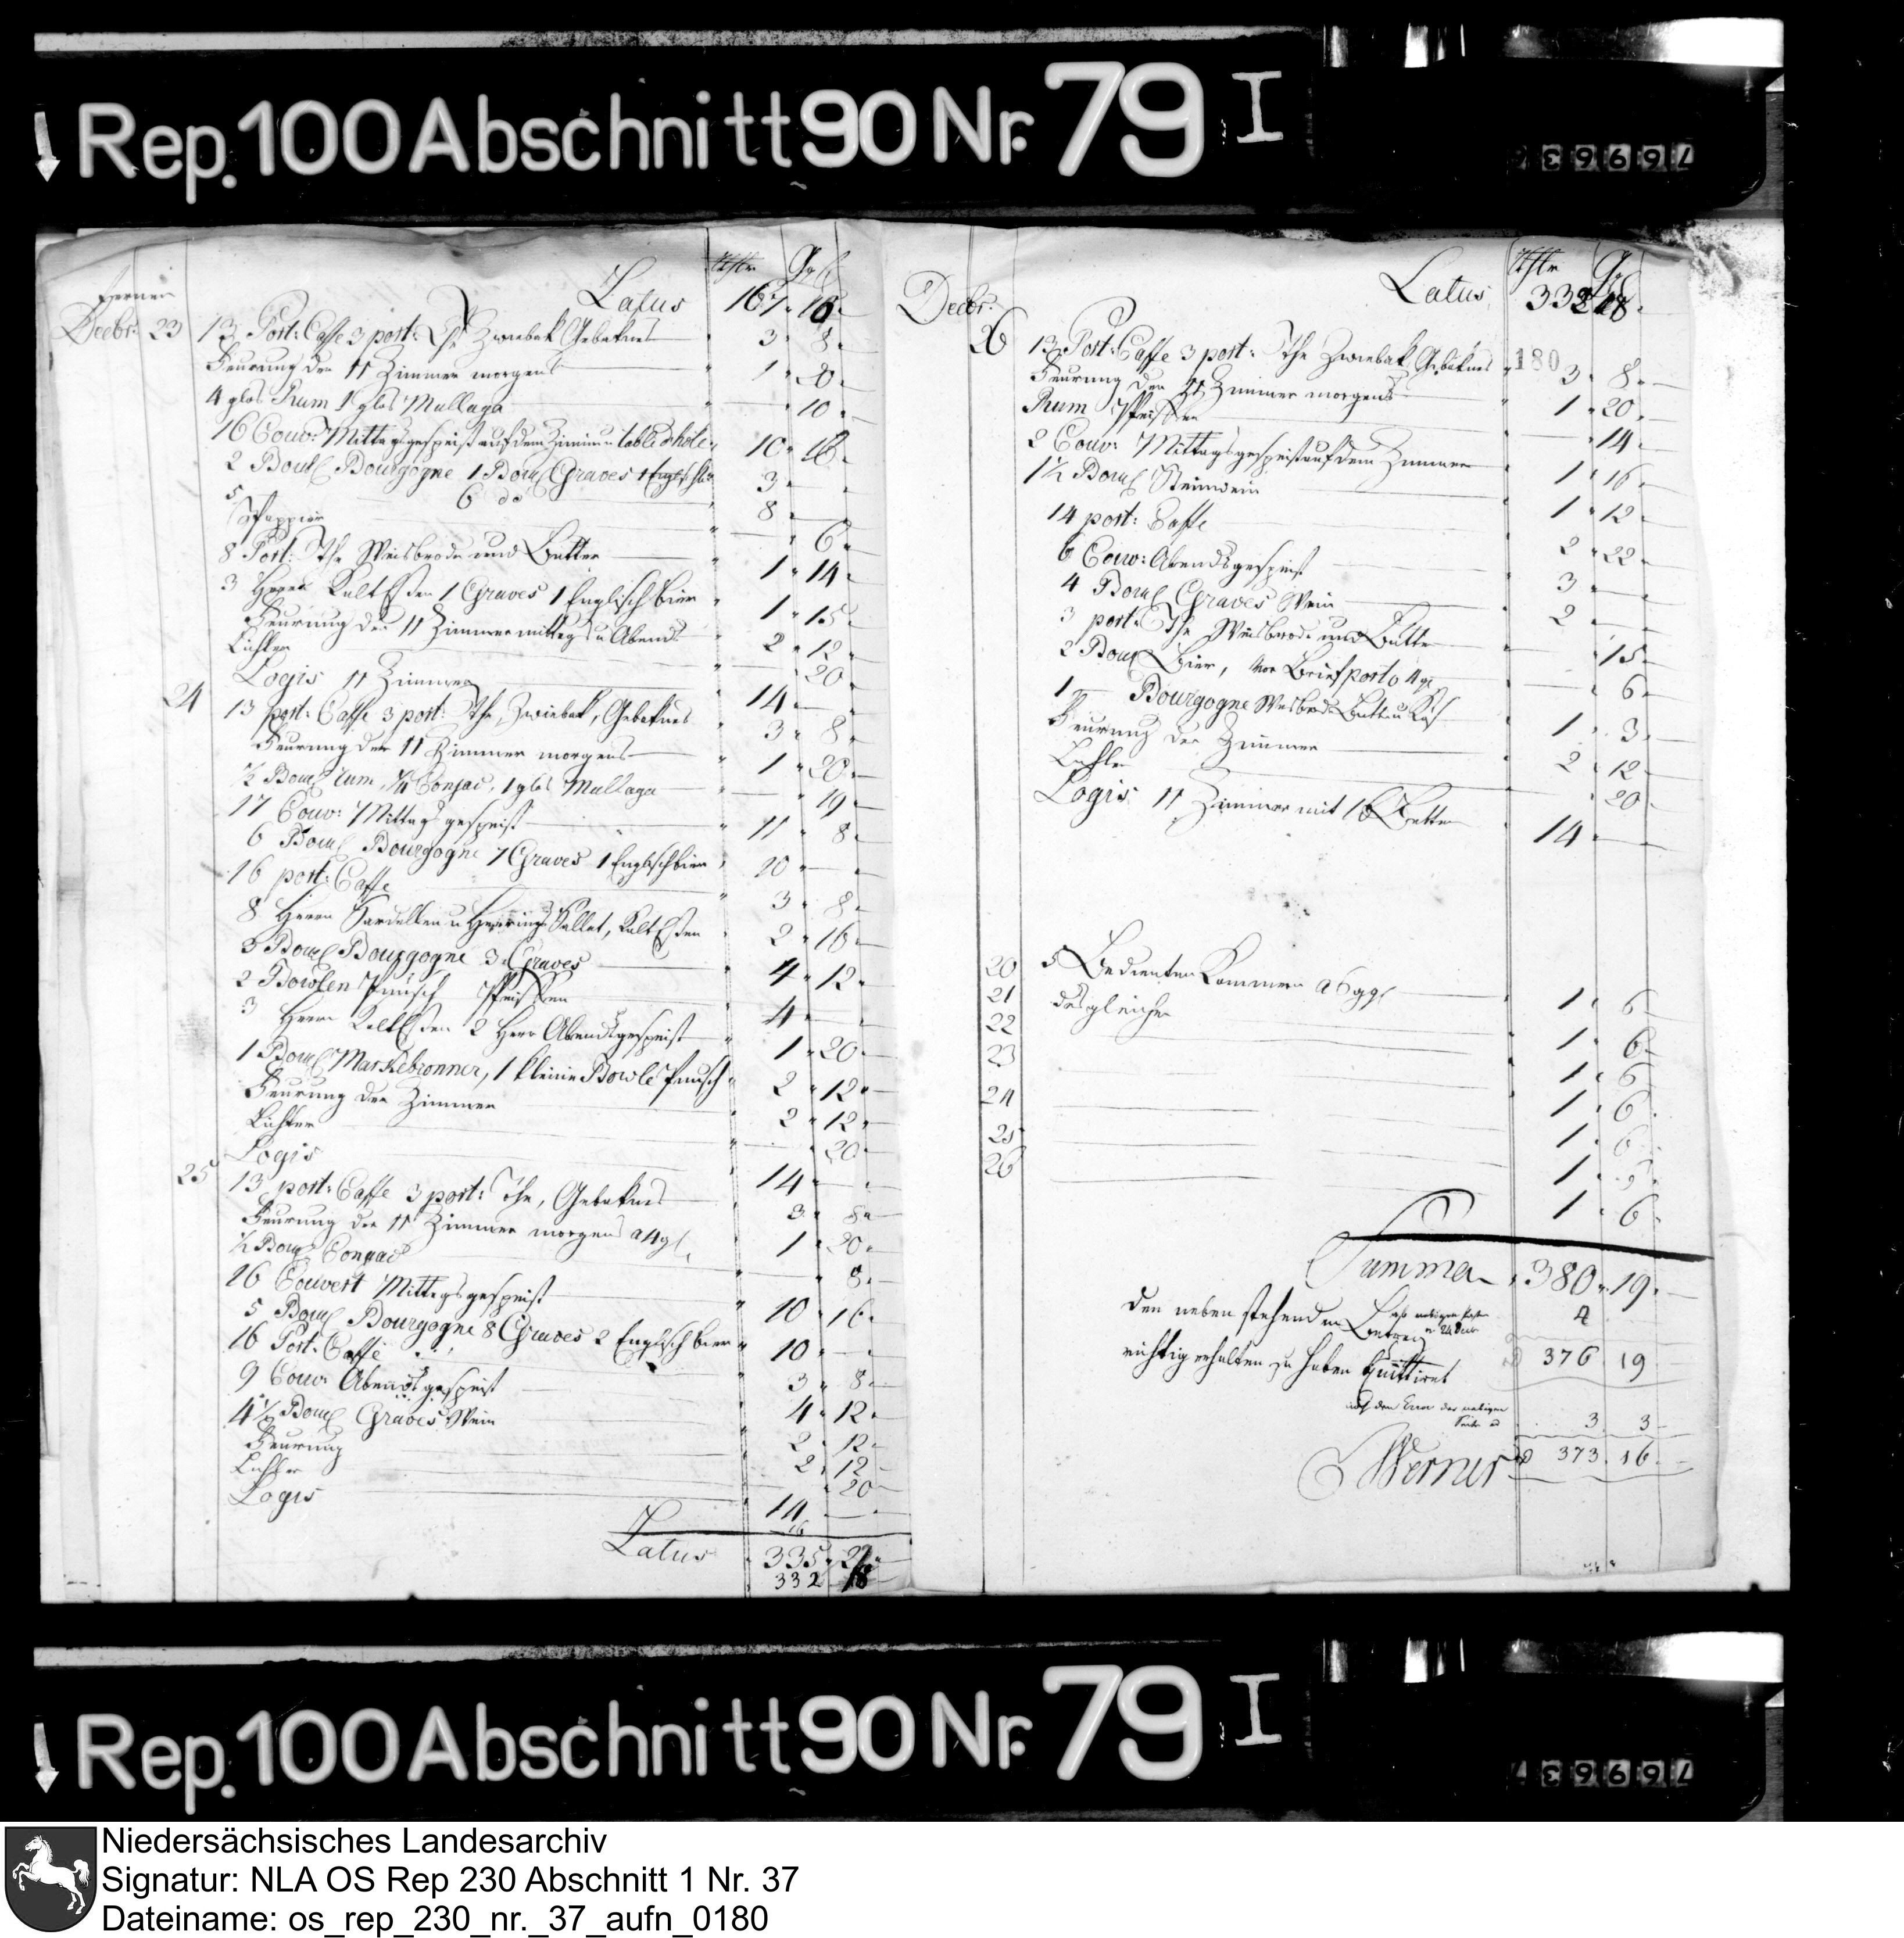 Rep. 100 Abschnitt 90 Nr. 79 I
769637
Rthlr Ggl
ferner Latus 167 16
Decbr: 23 13 Port: Caffe 3 port: The Zwiebak Gebaknes 3 8
Feurung der 11 Zimmer morgens 1 20
4 glas Rum 1 glas Mallaga 10
16 Couv: Mittagsgespeist auf dem Zimmer table dhote 10 16
2 Boutl Bourgogne 1 Boutl Graves 1 Englisch bier 3
5 6 do 8
Pappier 6
8 Port: The Weisbrode und Butter 1 14
3 Herrn Kalt Essen 1 Graves 1 Englisch bier 1 15
Feurung der 11 Zimmer mittags u Abends 2 12
Lichter 20
Logis 11 Zimmer 14
24 13 port: Caffe 3 port: The, Zwiebak, Gebaknes 3 8
Feurung der 11 Zimmer morgens 1 20
½ Boutl Rum, ¼ Conjac, 1 glas Mallaga 19
17 Couv: Mittags gespeist 11 8
6 Boutl Bourgogne 7 Graves 1 Englisch bier 10
16 port: Caffe 3 8
8 Herrn Sardellen u Hering Sallat, Kalt Essen 2 16
3 Boutl Bourgogne 3 Graves 4 12
2 Bowlen Punsch Pfeiffen 4
3 Herrn Kalt Essen 2 Herr Abendsgespeist 1 20
1 Boutl Markebronner, 1 kleine Bowle Punsch 2 12
Feurung der Zimmer 2 12
Lichter 20
Logis 14
25 13 port: Caffe 3 port: The, Gebaknes 3 8
Feurung der 11 Zimmer morgens a 4 ggl 1 20
½ Boutl Conjac 8
16 Couvert Mittagsgespeist 10 16
5 Boutl Bourgogne 8 Graves 2 Englisch bier 10
16 Port: Caffe 3 8
9 Couv: Abendsgespeist 4 12
4 ½ Boutl Graves Wein 2 12
Feurung 2 12
Lichter 20
Logis 14
Latus 335 22
332 18
Rthlr Ggl
Decbr: Latus 332 18
180
26 13 Port: Caffe 3 port: The Zwiebak Gebaknes 3 8
Feurung der 11 Zimmer morgens 1 20
Rum Pfeiffen 14
2 Couv: Mittagsgespeist auf dem Zimmer 1 16
1 ½ Boutl Steinwein 1 12
14 port: Caffe 2 22
6 Couv: Abendsgespeist 3
4 Boutl Graves Wein 2
3 port: The Weisbrode und Butter 15
2 Boutl Bier, vor Briefporto 4 ggl 6
1 Bourgogne Weisbrode Butter u Käs 1 3
Feurung der Zimmer 2 12
Lichter 20
Logis 11 Zimmer mit 16 Betten 14
20 5 Bedienten Kammern a 6 ggl 1 6
21 desgleichen 1 6
22 1 6
23 1 6
24 1 6
25 1 6
26 1 6
Summa 380 19
4
den neben stehenden Betrag 376 19
richtig erhalten zu haben quittiret
3 3
Werner 373 16
Rep. 100 Abschnitt 90 Nr. 79 I
769637
Niedersächsisches Landesarchiv
Signatur: NLA OS Rep 230 Abschnitt 1 Nr. 37
Dateiname: os_rep_230_nr._37_aufn_0180